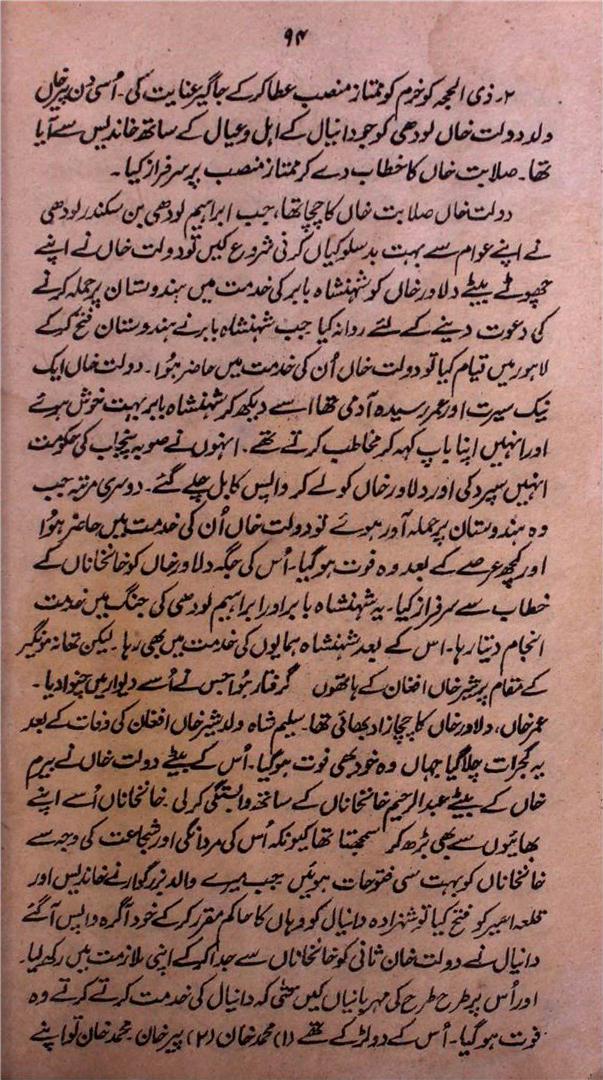 ۹۴
۲۔ ذی الحجہ کو خرم کو ممتاز منصب عطا کر کے جاگیر عنایت کی۔ اُسی دن پیر خاں
ولد دولت خاں لودھی کو جو دانیال کے اہل و عیال کے ساتھ خاندلیس سے آیا
تھا۔ صلابت خاں کا خطاب دے کر ممتاز منصب پر سرفراز کیا۔
دولت خاں صلابت خاں کا چچا تھا، جب ابراہیم لودھی بن سکندر لودھی
نے اپنے عوام سے بہت بدسلوکیاں کرنی شروع کیں تو دولت خاں نے اپنے
چھوٹے بیٹے دلاور خاں کو شہنشاہ بابر کی خدمت میں ہندوستان پر حملہ کرنے
کی دعوت دینے کے لئے روانہ کیا جب شہنشاہ بابر نے ہندوستان فتح کر کے
لاہور میں قیام کیا تو دولت خاں اُن کی خدمت میں حاضر ہُوا۔ دولت خاں ایک
نیک سیرت اور عمر رسیدہ آدمی تھا اسے دیکھ کر شہنشاہ بابر بہت خوش ہوئے
اور انہیں اپنا باپ کہہ کر مخاطب کرتے تھے۔ انہوں نے صوبہ پنجاب کی حکومت
انہیں سپرد کی اور دلاور خاں کو لے کر واپس کابل چلے گئے۔ دوسری مرتبہ جب
وہ ہندوستان پر حملہ آور ہوئے تو دولت خاں اُن کی خدمت میں حاضر ہُوا
اور کچھ عرصے کے بعد وہ فوت ہو گیا۔ اُس کی جگہ دلاور خاں کو خانخاناں کے
خطاب سے سرفراز کیا۔ یہ شہنشاہ بابر اور ابراہیم لودھی کی جنگ میں خدمت
انجام دیتا رہا۔ اس کے بعد شہنشاہ ہمایوں کی خدمت میں بھی رہا۔ لیکن تھانہ مونگیر
کے مقام پر شیر خاں افغان کے ہاتھوں گرفتار ہُوا جس نے اُسے دیوار میں چنوا دیا۔
عمر خاں، دلاور خاں کا چچازاد بھائی تھا۔ سلیم شاہ ولد شیر خاں افغان کی وفات کے بعد
یہ گجرات چلا گیا جہاں وہ خود بھی فوت ہو گیا۔ اُس کے بیٹے دولت خاں نے بیرم
خاں کے بیٹے عبدالرحیم خانخاناں کے ساتھ وابستگی کر لی۔ خانخاناں اُسے اپنے
بھائیوں سے بھی بڑھ کر سمجھتا تھا کیونکہ اُس کی مردانگی اور شجاعت کی وجہ سے
خانخاناں کو بہت سی فتوحات ہوئیں جب میرے والد بزرگوار نے خاندلیس اور
قلعہ اسیر کو فتح کیا تو شہزادہ دانیال کو وہاں کا حاکم مقرر کر کے خود آگرہ واپس آ گئے
دانیال نے دولت خان ثانی کو خانخاناں سے جدا کر کے اپنی ملازمت میں رکھ لیا۔
اور اُس پر طرح طرح کی مہربانیاں کیں حتٰی کہ دانیال کی خدمت کرتے کرتے وہ
فوت ہو گیا۔ اُس کے دو لڑکے تھے (۱) محمد خان (۲) پیر خان۔ محمد خان تو اپنے